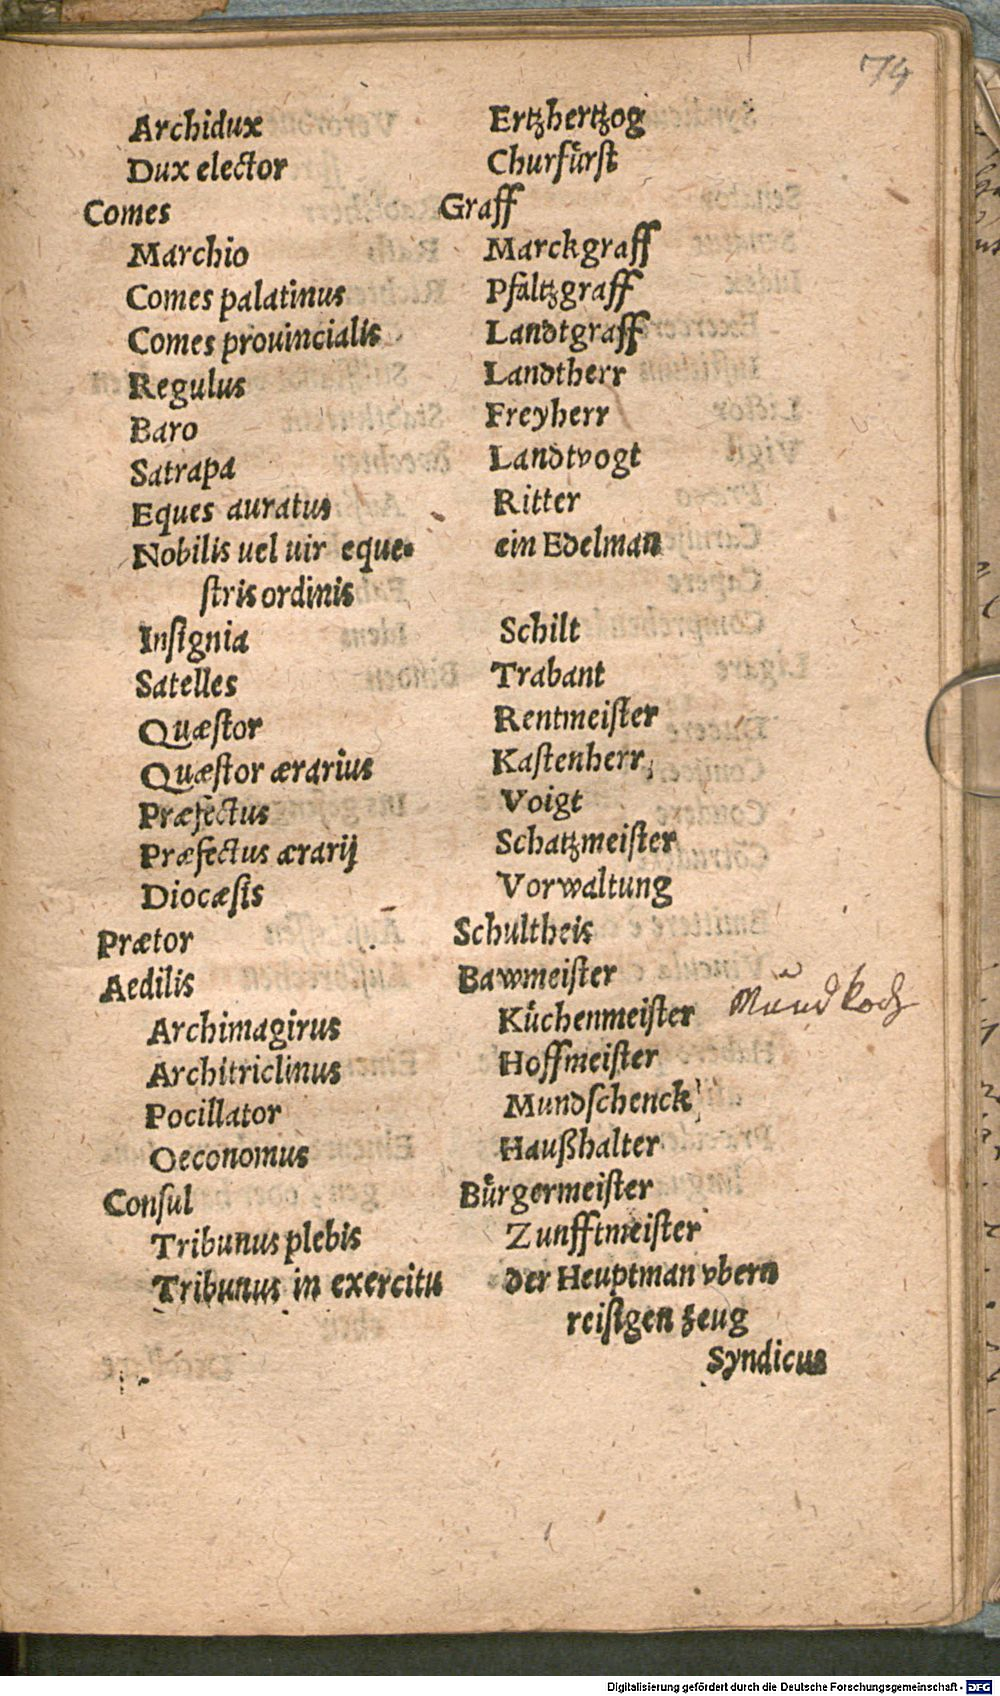 74
Archidux Ertzhertzog
Dux elector Churfürst
Comes Graff
Marchio Marckgraff
Comes palatinus Pfaltzgraff
Comes prouincialis Landtgraff
Regulus Landtherr
Baro Freyherr
Satrapa Landtvogt
Eques auratus Ritter
Nobilis uel uir eque- ein Edelman
ſtris ordinis
Inſignia Schilt
Satelles Trabant
Quæſtor Rentmeiſter
Quæſtor ærarius Kaſtenherr
Præfectus Voigt
Præfectus ærarij Schatzmeiſter
Diocæſis Vorwaltung
Prætor Schultheis
Aedilis Bawmeiſter
Mundkoch
Archimagirus Küchenmeiſter
Architriclinus Hoffmeiſter
Pocillator Mundſchenck
Oeconomus Haußhalter
Conſul Bürgermeiſter
Tribunus plebis Zunfftmeiſter
Tribunus in exercitu der Heuptman vbern
reiſigen zeug
Syndicus
Digitalisierung gefördert durch die Deutsche Forschungsgemeinschaft - DFG